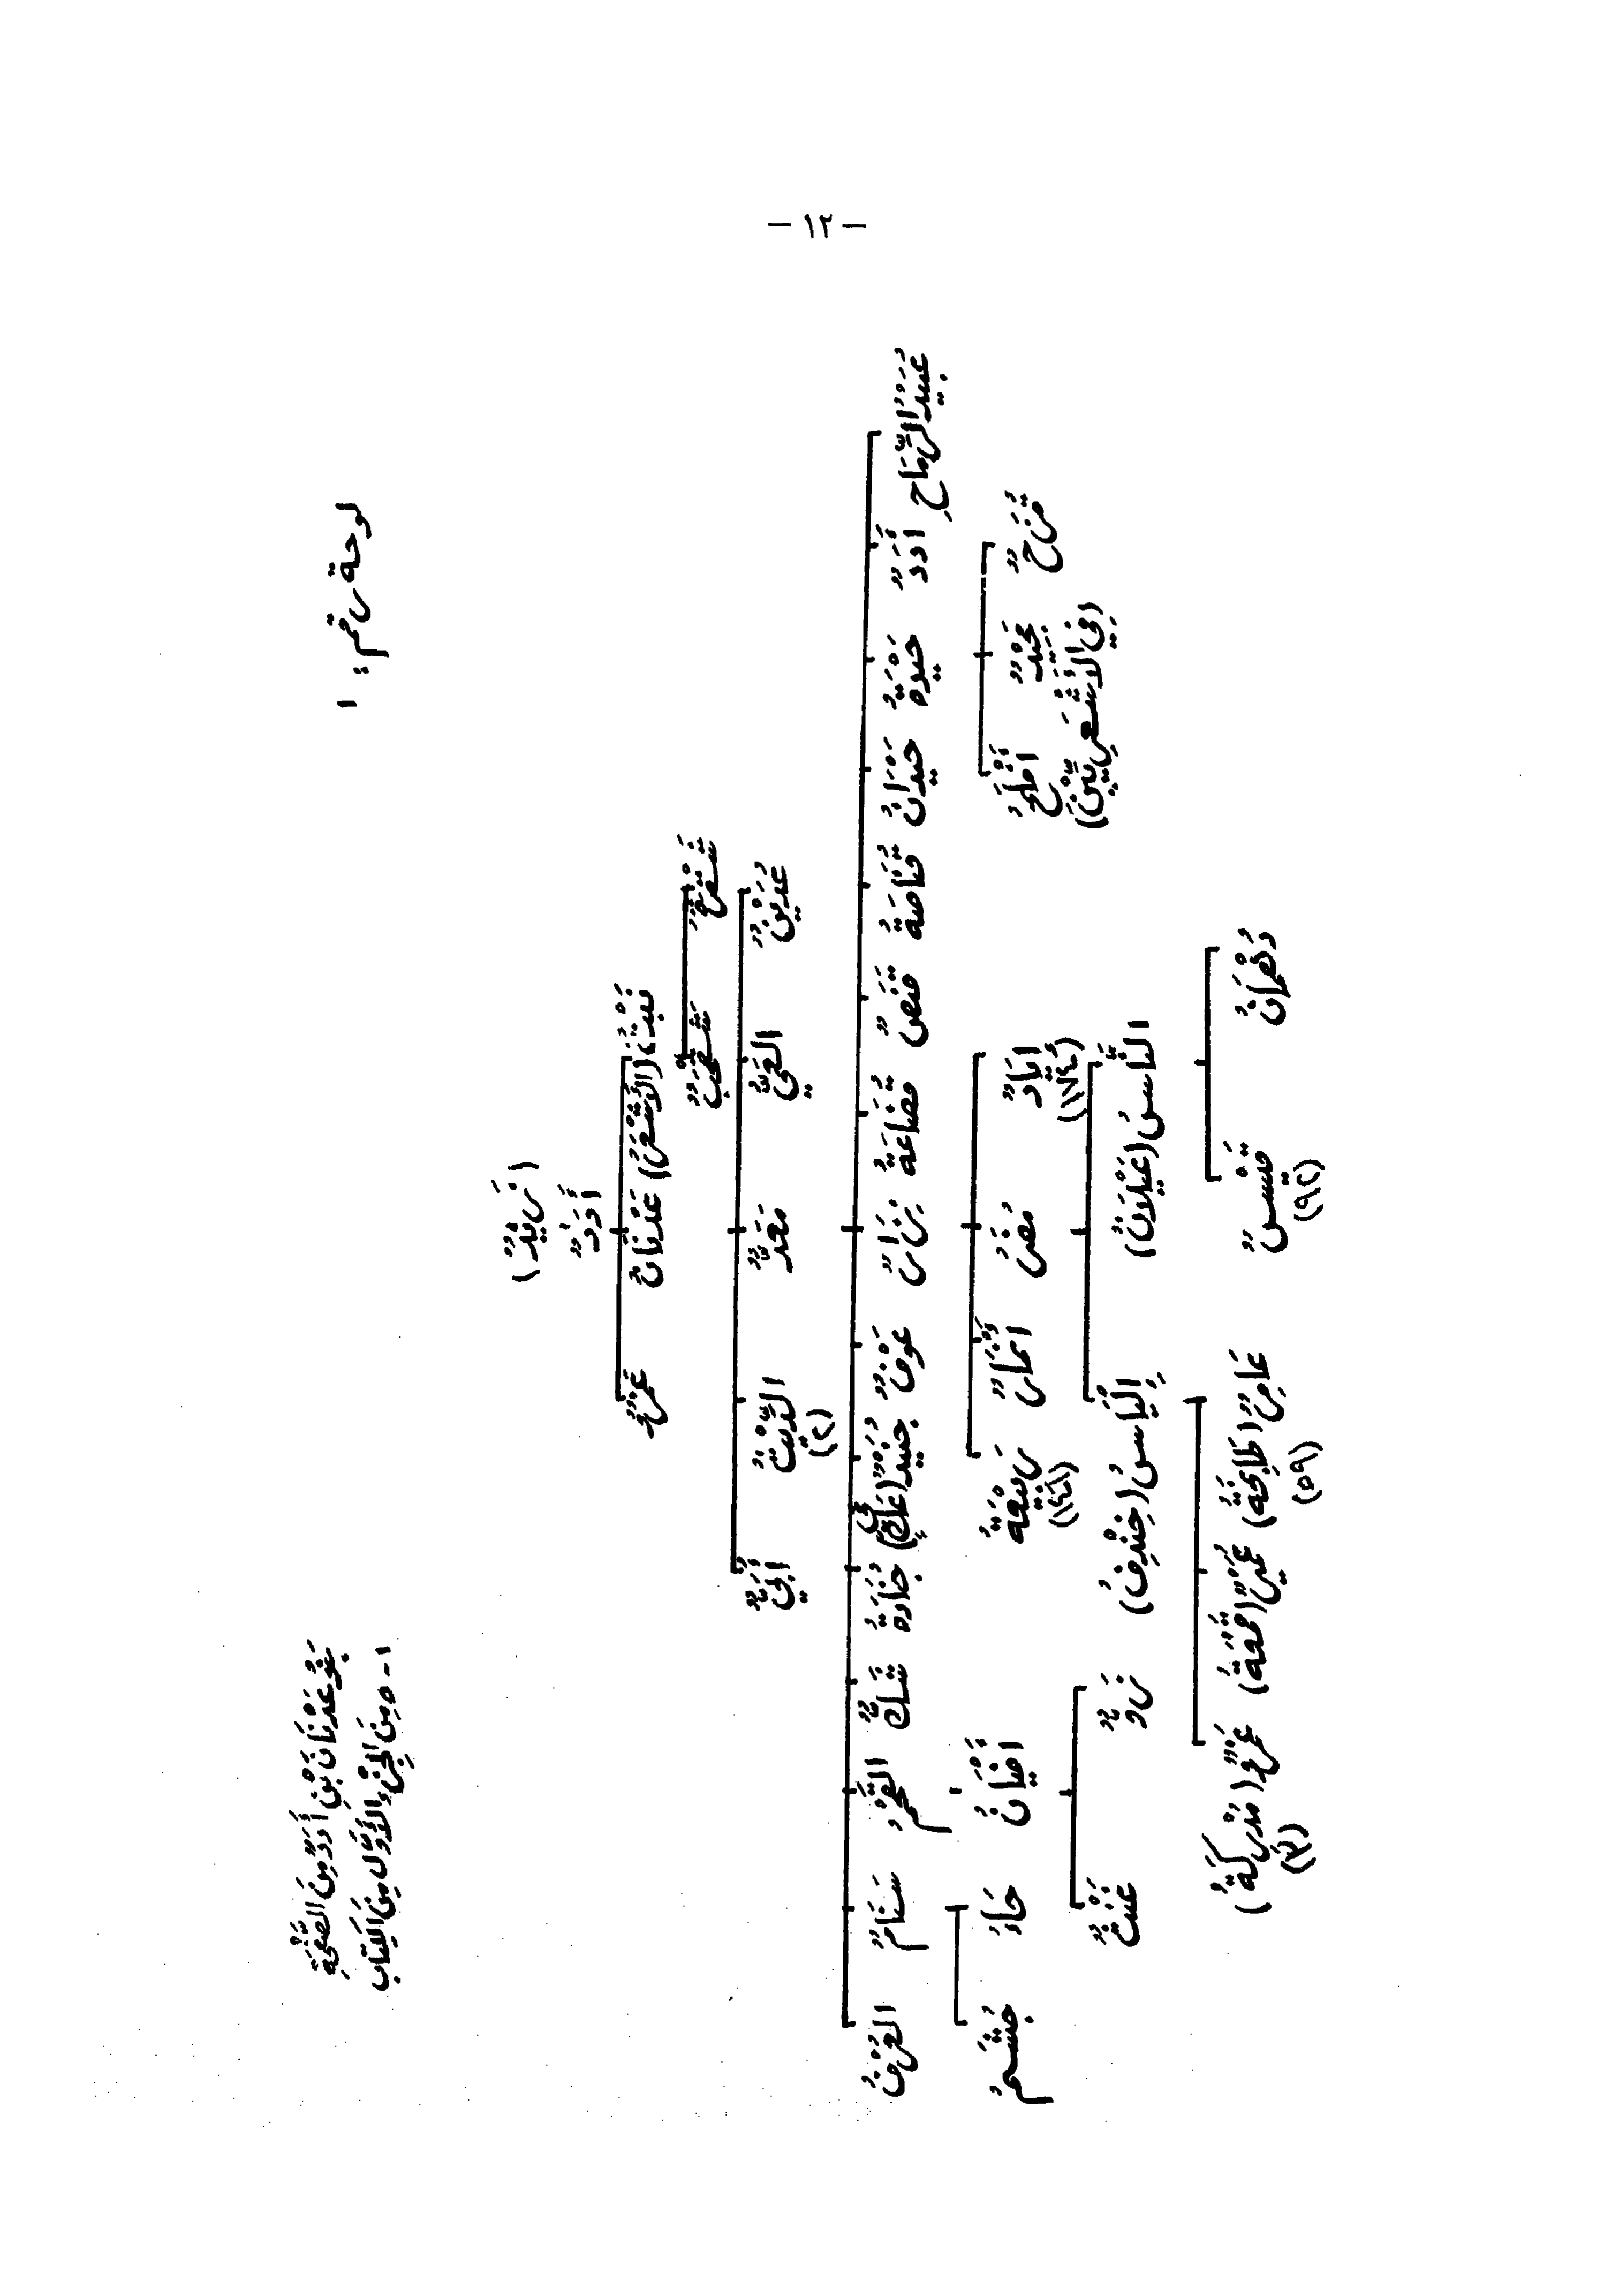 - ١٢ -
لوحة رقم: ١
بَنُو عَدْنَانَ بْنِ أُدَدٍ مِنَ الصَّفْحَةِ
١-٥ مِنَ الجُزْءِ الأَوَّلِ مِنَ الكِتَابِ
(زَيْدٌ)
أُدَدٌ
نَبْتٌ (الأَشْعَرُ) عَدْنَانُ عَمْرٌو
شَقْحَبٌ
عُدَيْنٌ العَيُّ مَعَدٌّ الدِّيثُ أُبَيٌّ
(٢)
عُبَيْدُ الرَّمَّاحِ أُدَدٌ حَيْدَةُ حَيْدَانُ قُنَاصَةُ قَنَصٌ قُضَاعَةُ نِزَارٌ عَوْفٌ جُنَيْدٌ (في عَكٍّ) جُنَادَةُ شَكٌّ القُحْمُ سَنَامٌ العُرْفُ
قُزَحٌ مَجِيْدٌ أَفْلَحُ إِيَادٌ مُضَرُ أَنْمَارٌ رَبِيْعَةُ أَفْيَانُ حَاءُ جُشَمُ
(فِي الأَشْعَرِيِّيْنَ) (١٧٤) (١٤١)
النَّاسُ (عَيْلَانُ) إِلْيَاسُ (خِنْدِفُ)
دُهْمَانُ قَيْسٌ عَامِرٌ (طَابِخَةُ) عُمَيْرٌ (قَمَعَةُ) عَمْرٌو (مُدْرِكَةُ)
(٩٢) (٥٩) (٣)